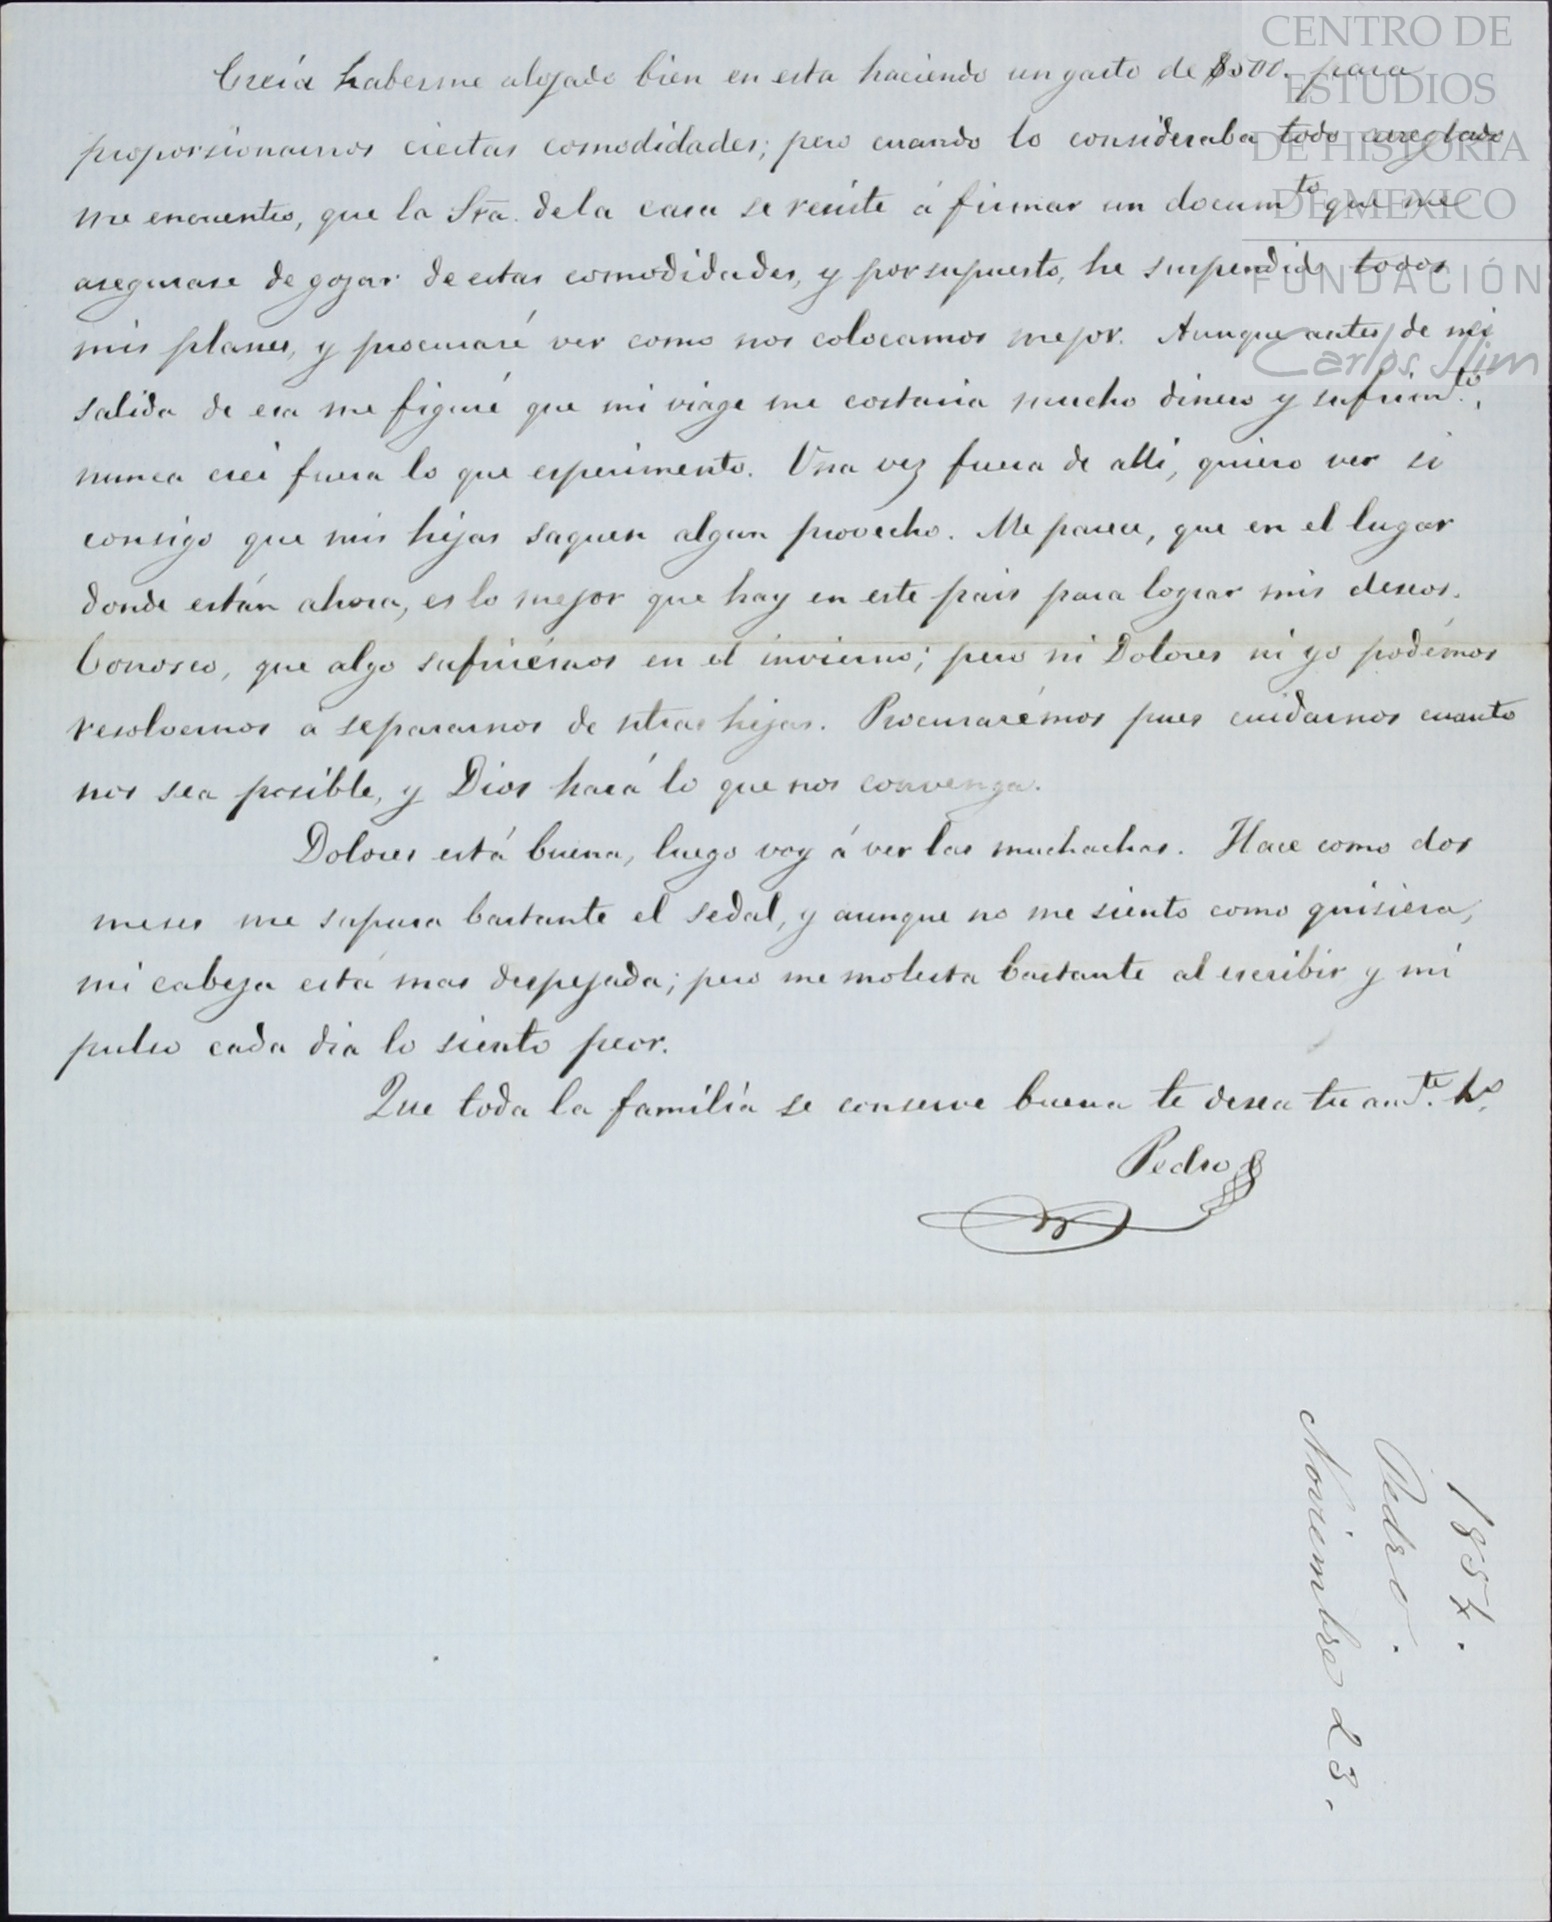 Creia habérme alojado bien en esta haciendo un gasto de $500. para
proporsionarnos ciertas comodidades; pero cuando lo consideraba todo arreglado
me encuentro, que la Sra. dela casa se resiste á firmar un docum.to que me
asegurase de gozar de estas comodidades, y porsupuesto, he suspendido todos
mis planes, y procuraré ver como nos colocamos mejor. Aunque antes de mi
salida de esa me figuré que mi viage me costaria mucho dinero y sufrim.to,
nunca crei fuera lo que esperimento. Una vez fuera de alli, quiero ver si
consigo que mis hijas saquen algun provecho. Me parece, que en el lugar
donde están ahora, es lo mejor que hay en este pais para lograr mis deseos.
Conosco, que algo sufrirémos en el invierno; pero ni Dolores ni yo podémos
resolvernos a separarnos de ntras hijas. Procurarémos pues cuidarnos cuanto
nos sea posible, y Dios hará lo que nos convenga.
Dolores está buena, luego voy á ver las muchachas. Hace como dos
meses me supura bastante el sedal, y aunque no me siento como quisiera,
mi cabeza está mas despejada; pero me molesta bastante al escribir y mi
pulso cada dia lo siento peor.
Que toda la familia se conserve buena te desea tu am.te h.o
Pedro
1854.
Pedro.
Noviembre 23.
CENTRO DE
ESTUDIOS
DE HISTORIA
DE MEXICO
FUNDACIÓN
Carlos Slim